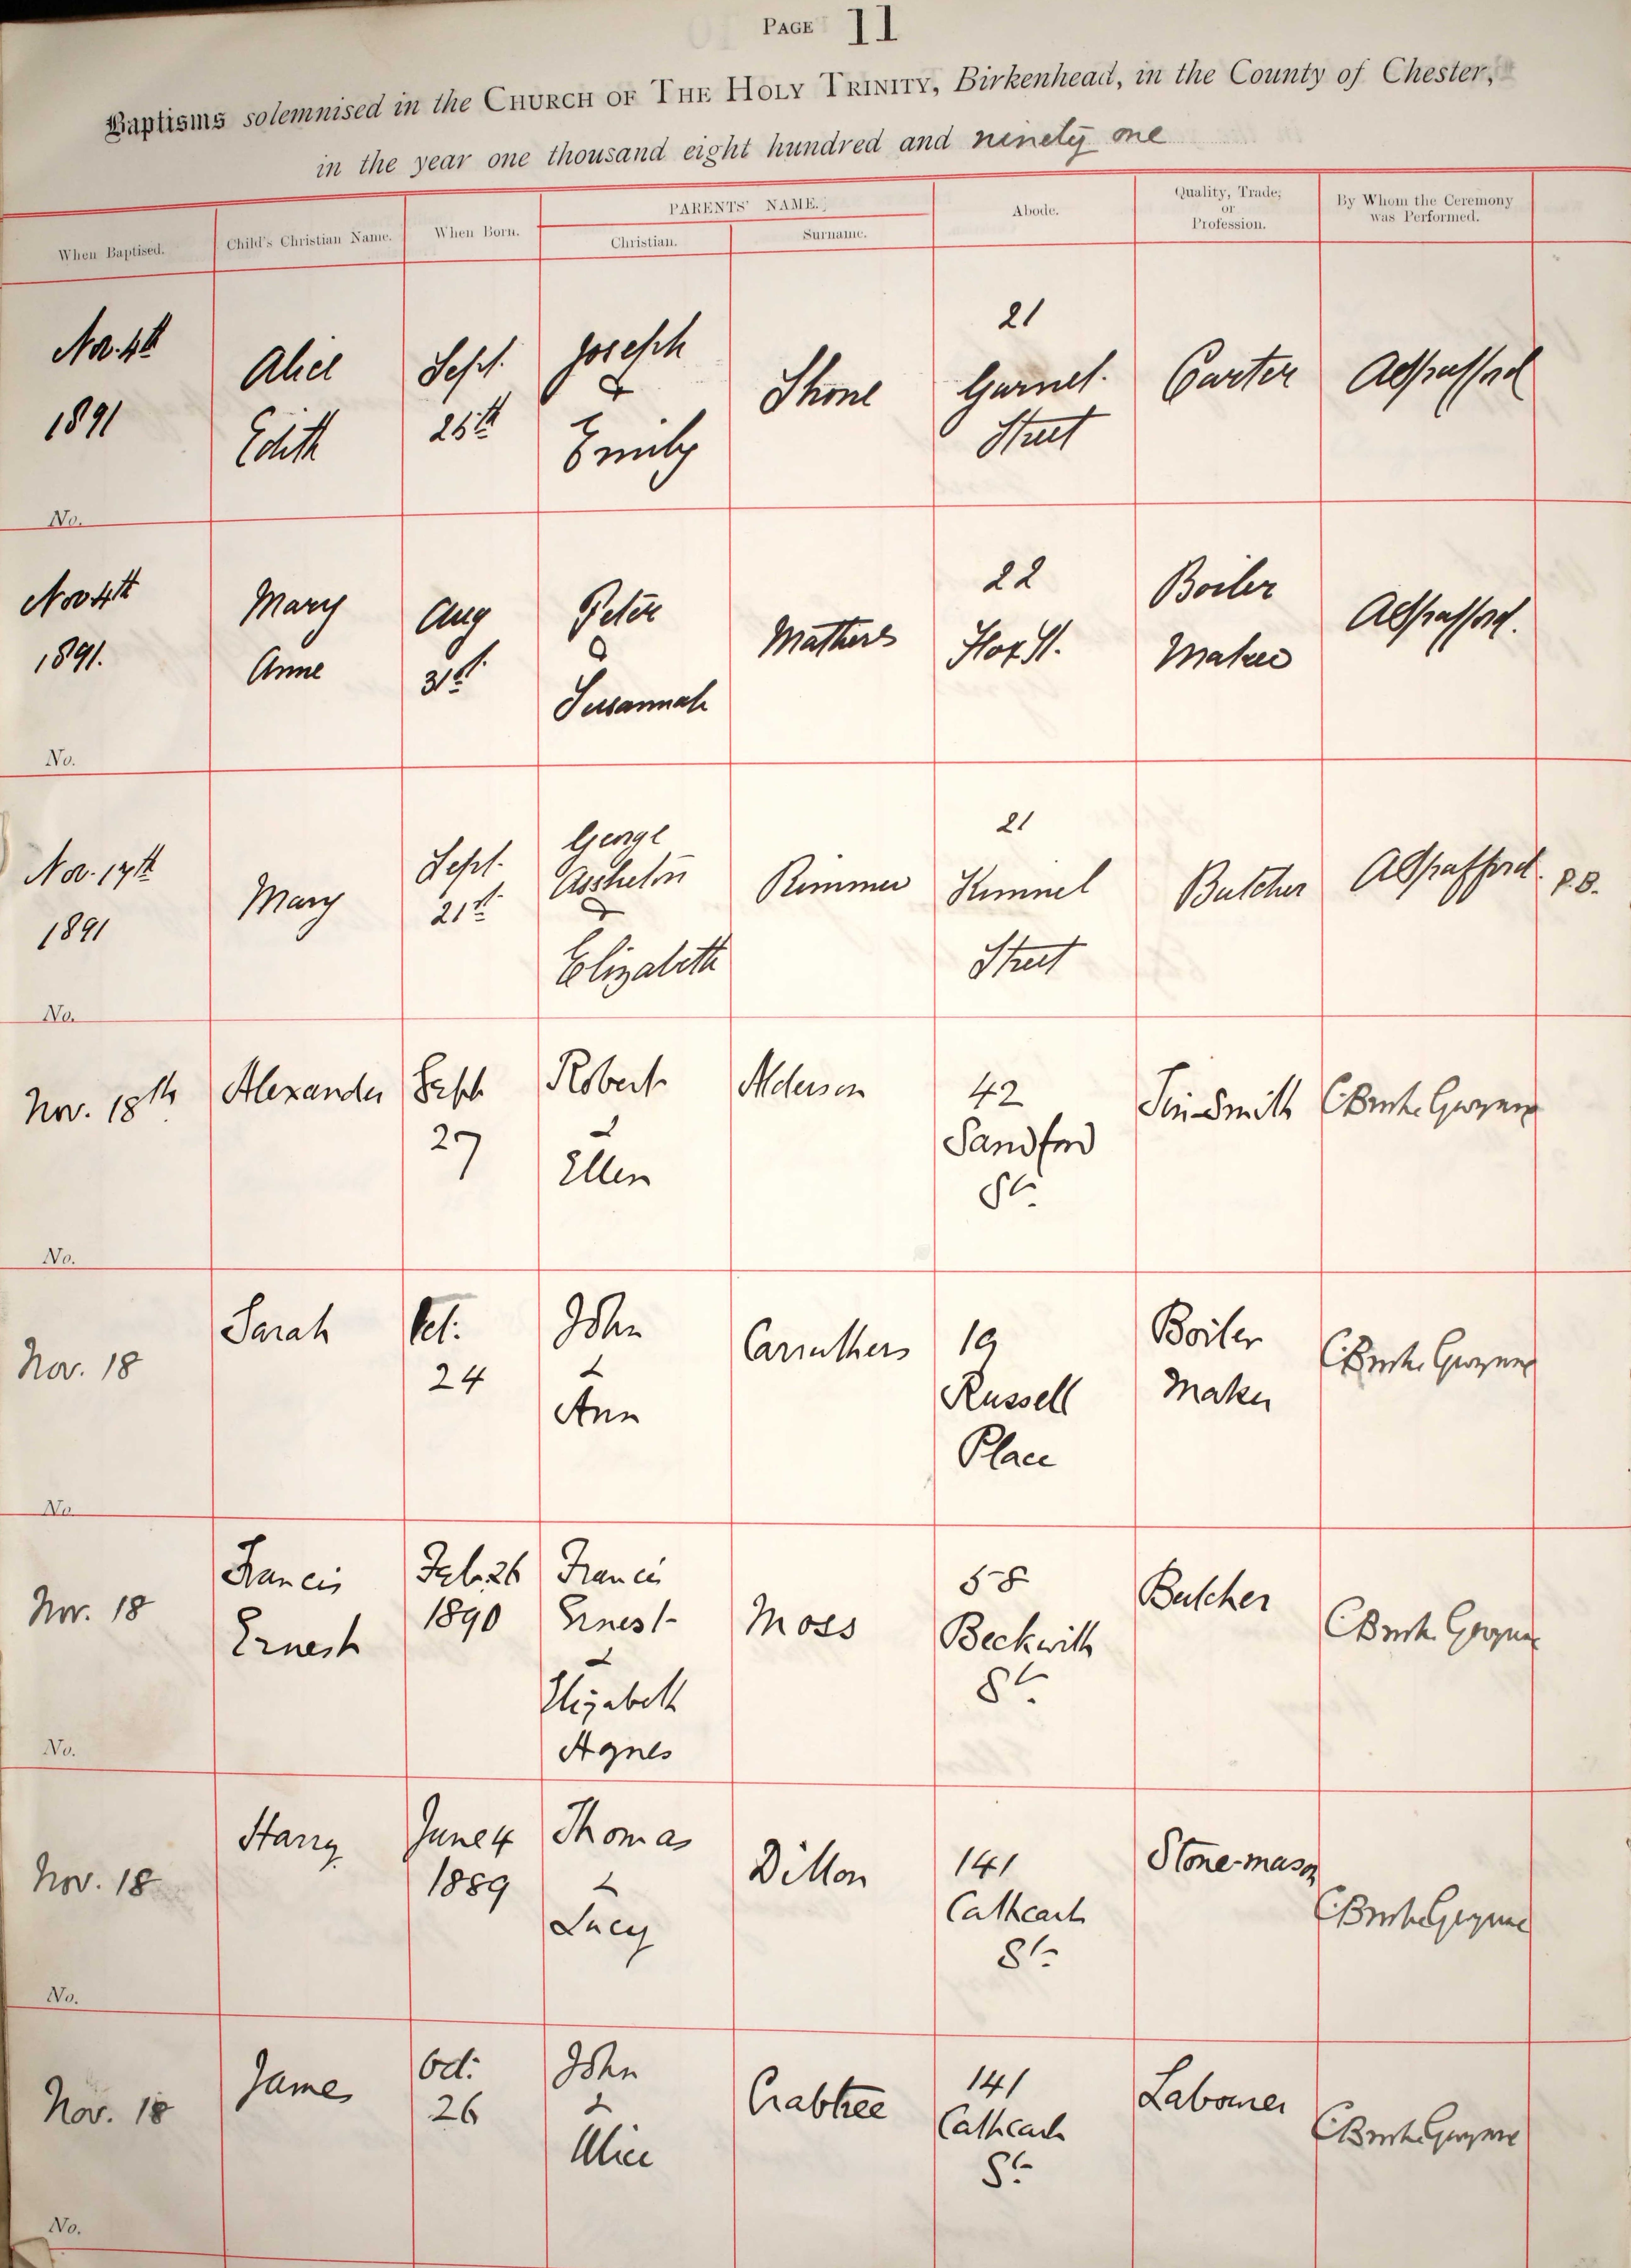 PAGE 11
Baptisms solemnised in the CHURCH OF THE HOLY TRINITY, Birkenhead, in the County of Chester,
in the year one thousand eight hundred and ninety one
When Baptised.
Child's Christian Name.
When Born.
PARENTS' NAME.
Christian.
Surname.
Abode.
Quality, Trade,
or
Profession.
By Whom the Ceremony
was Performed.
Nov. 4th
1891
No.
Alice
Edith
Sept.
Joseph
&
Emily
Shone
21
Garnet
Street
Carter
Nov 4th
1891.
No.
Mary
Anne
Aug
31st
Peter
&
Susannah
Mathers
22
St.
Boiler
Maker
Nov. 17th
1891
No.
Mary
Sept.
21st
George
Assheton
&
Elizabeth
Rimmer
21
Street
Butcher
P.B.
Nov. 18th
No.
Alexander
Sept
27
Robert
&
Ellen
Alderson
42
Sandford
St.
Tin-Smith
Nov. 18
No.
Sarah
Oct.
24
John
&
Ann
Carruthers
19
Russell
Place
Boiler
Maker
Nov. 18
No.
Francis
Ernest
Feb. 26
1890
Francis
Ernest
&
Elizabeth
Agnes
Moss
58
Beckwith
St.
Butcher
Nov. 18
No.
Harry
June 4
1889
Thomas
&
Lucy
Dillon
141
Cathcart
St.
Stone-mason
Nov. 18
No.
James
Oct.
26
John
&
Alice
Crabtree
141
Cathcart
St.
Labourer